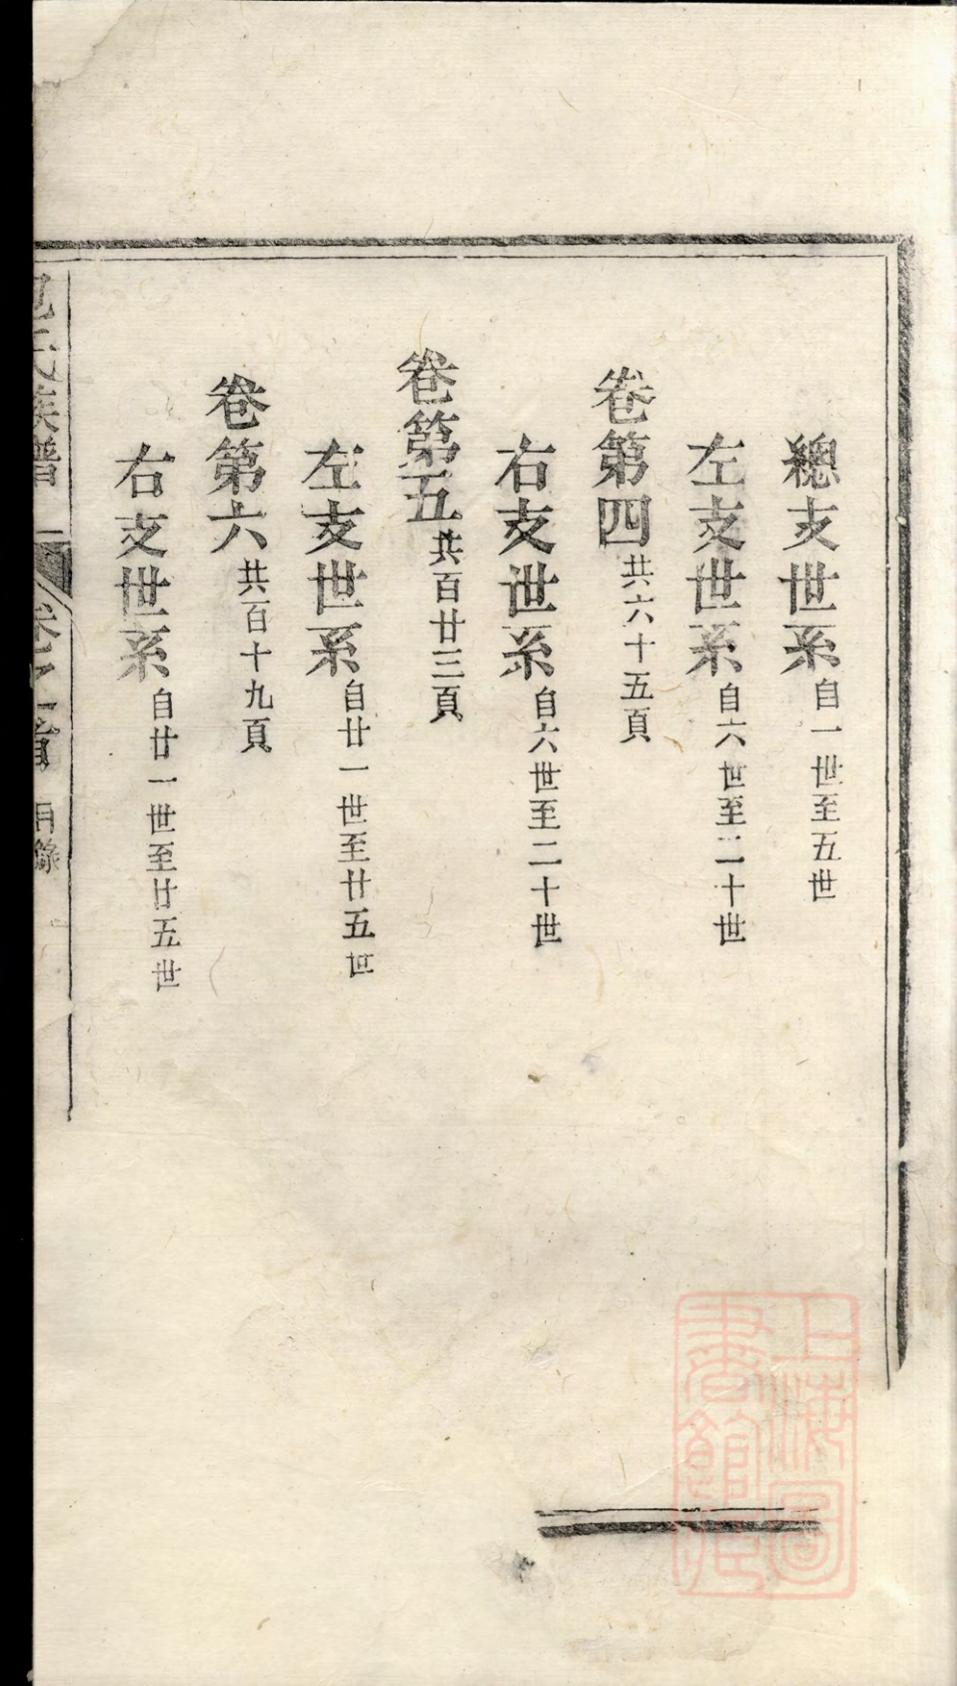 總支世系自一世至五世
左支世系自六世至二十世
卷第四共六十五頁
右支世系自六世至二十世
卷第五共百廿三頁
左支世系自廿一世至廿五世
卷第六共百十九頁
右支世系自廿一世至廿五世
氏族譜 卷之首 目錄
上海圖書館藏